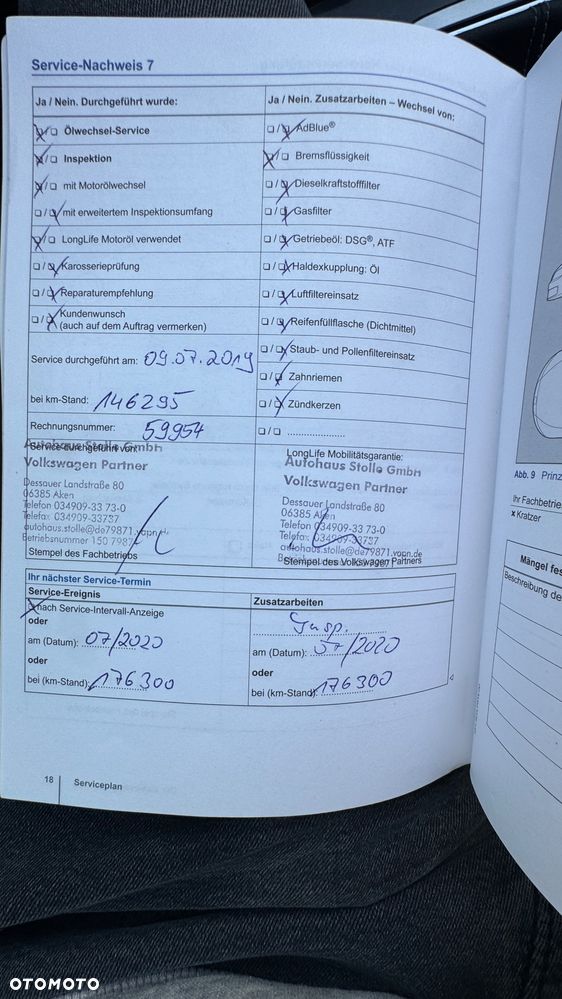 Service-Nachweis 7
Ja / Nein. Durchgeführt wurde:
Ölwechsel-Service
Inspektion
mit Motorölwechsel
mit erweitertem Inspektionsumfang
LongLife Motoröl verwendet
Karosserieprüfung
Reparaturempfehlung
Kundenwunsch
(auch auf dem Auftrag vermerken)
Service durchgeführt am: 09.07.2019
bei km-Stand: 146295
Rechnungsnummer: 59954
Service durchgeführt von:
Autohaus Stolle GmbH
Volkswagen Partner
Dessauer Landstraße 80
06385 Aken
Telefon 034909-33 73-0
Telefax 034909-33737
autohaus.stolle@de79871.vapn.de
Betriebsnummer 150 79871
Stempel des Fachbetriebs
Ja / Nein. Zusatzarbeiten – Wechsel von:
AdBlue®
Bremsflüssigkeit
Dieselkraftstofffilter
Gasfilter
Getriebeöl: DSG®, ATF
Haldexkupplung: Öl
Luftfiltereinsatz
Reifenfüllflasche (Dichtmittel)
Staub- und Pollenfiltereinsatz
Zahnriemen
Zündkerzen
LongLife Mobilitätsgarantie:
Autohaus Stolle GmbH
Volkswagen Partner
Dessauer Landstraße 80
06385 Aken
Telefon 034909-33 73-0
Telefax 034909-33737
autohaus.stolle@de79871.vapn.de
Stempel des Volkswagen Partners
Ihr nächster Service-Termin
Service-Ereignis
nach Service-Intervall-Anzeige
oder
am (Datum): 07/2020
oder
bei (km-Stand): 176300
Zusatzarbeiten
Insp.
am (Datum): 07/2020
oder
bei (km-Stand): 176300
18
Serviceplan
Abb. 9 Prinz
Ihr Fachbetrie
x Kratzer
Mängel fes
Beschreibung de
OTOMOTO